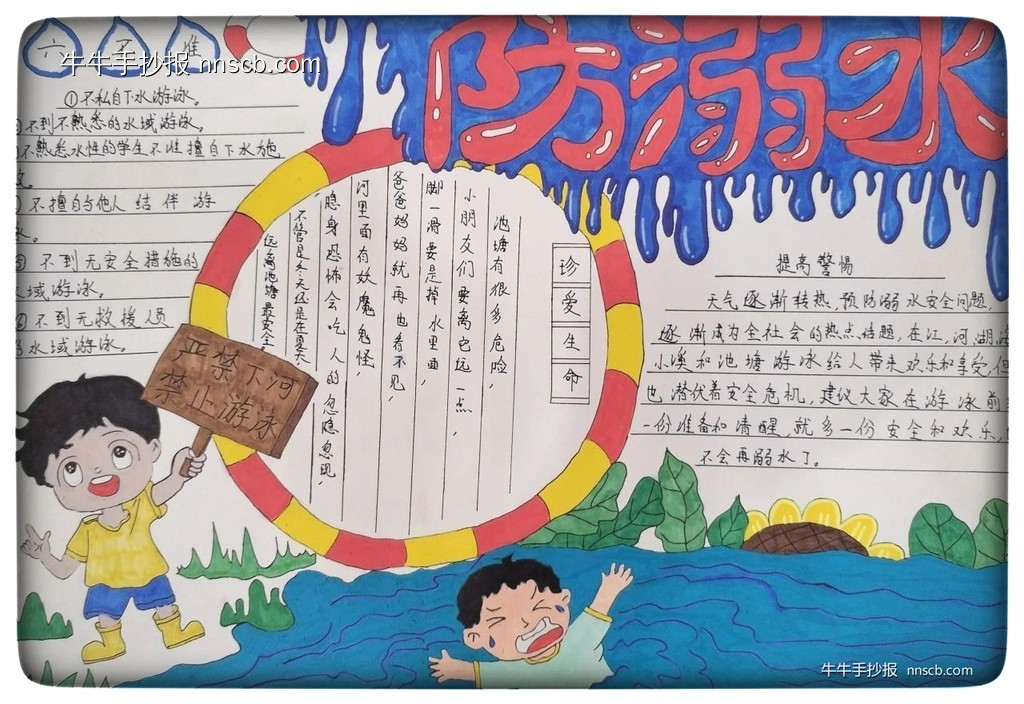 六不准
牛牛手抄报 nnscb.com
①不私自下水游泳。
②不到不熟悉的水域游泳。
不熟悉水性的学生不准擅自下水施
不擅自与他人结伴游
不到无安全措施的
水域游泳。
不到无救援人员
水域游泳。
严禁下河
禁止游泳
防溺水
珍爱生命
池塘有很多危险,
小朋友们要离它远一点,
脚一滑要是掉水里面,
爸爸妈妈就再也看不见,
河里面有妖魔鬼怪,
隐身恐怖会吃人的忽隐忽现,
不管是冬天还是在夏天,
远离池塘最安全
提高警惕
天气逐渐转热,预防溺水安全问题,
逐渐成为全社会的热点话题,在江,河湖,海
小溪和池塘游泳给人带来欢乐和享受,但
也潜伏着安全危机,建议大家在游泳前
一份准备和清醒,就多一份安全和欢乐,
不会再溺水了。
牛牛手抄报 nnscb.com